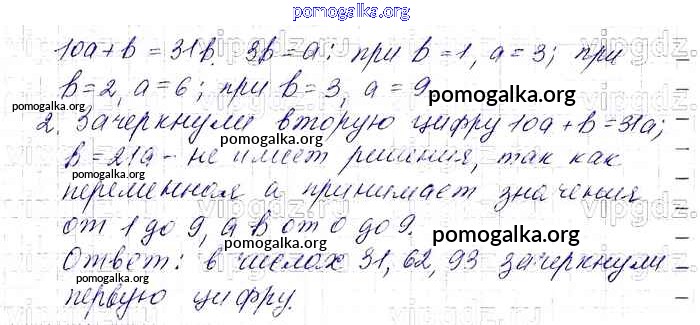 pomogalka.org
10a+b = 31b. 3b = a: при b = 1, a = 3; при
b = 2, a = 6; при b = 3, a = 9
pomogalka.org
pomogalka.org
2. Зачеркнули вторую цифру 10a + b = 31a;
pomogalka.org
b = 21a - не имеет решения, так как
pomogalka.org
переменная a принимает значения
от 1 до 9, а b от 0 до 9.
pomogalka.org
pomogalka.org
Ответ: в числах 31, 62, 93 зачеркнули
первую цифру.